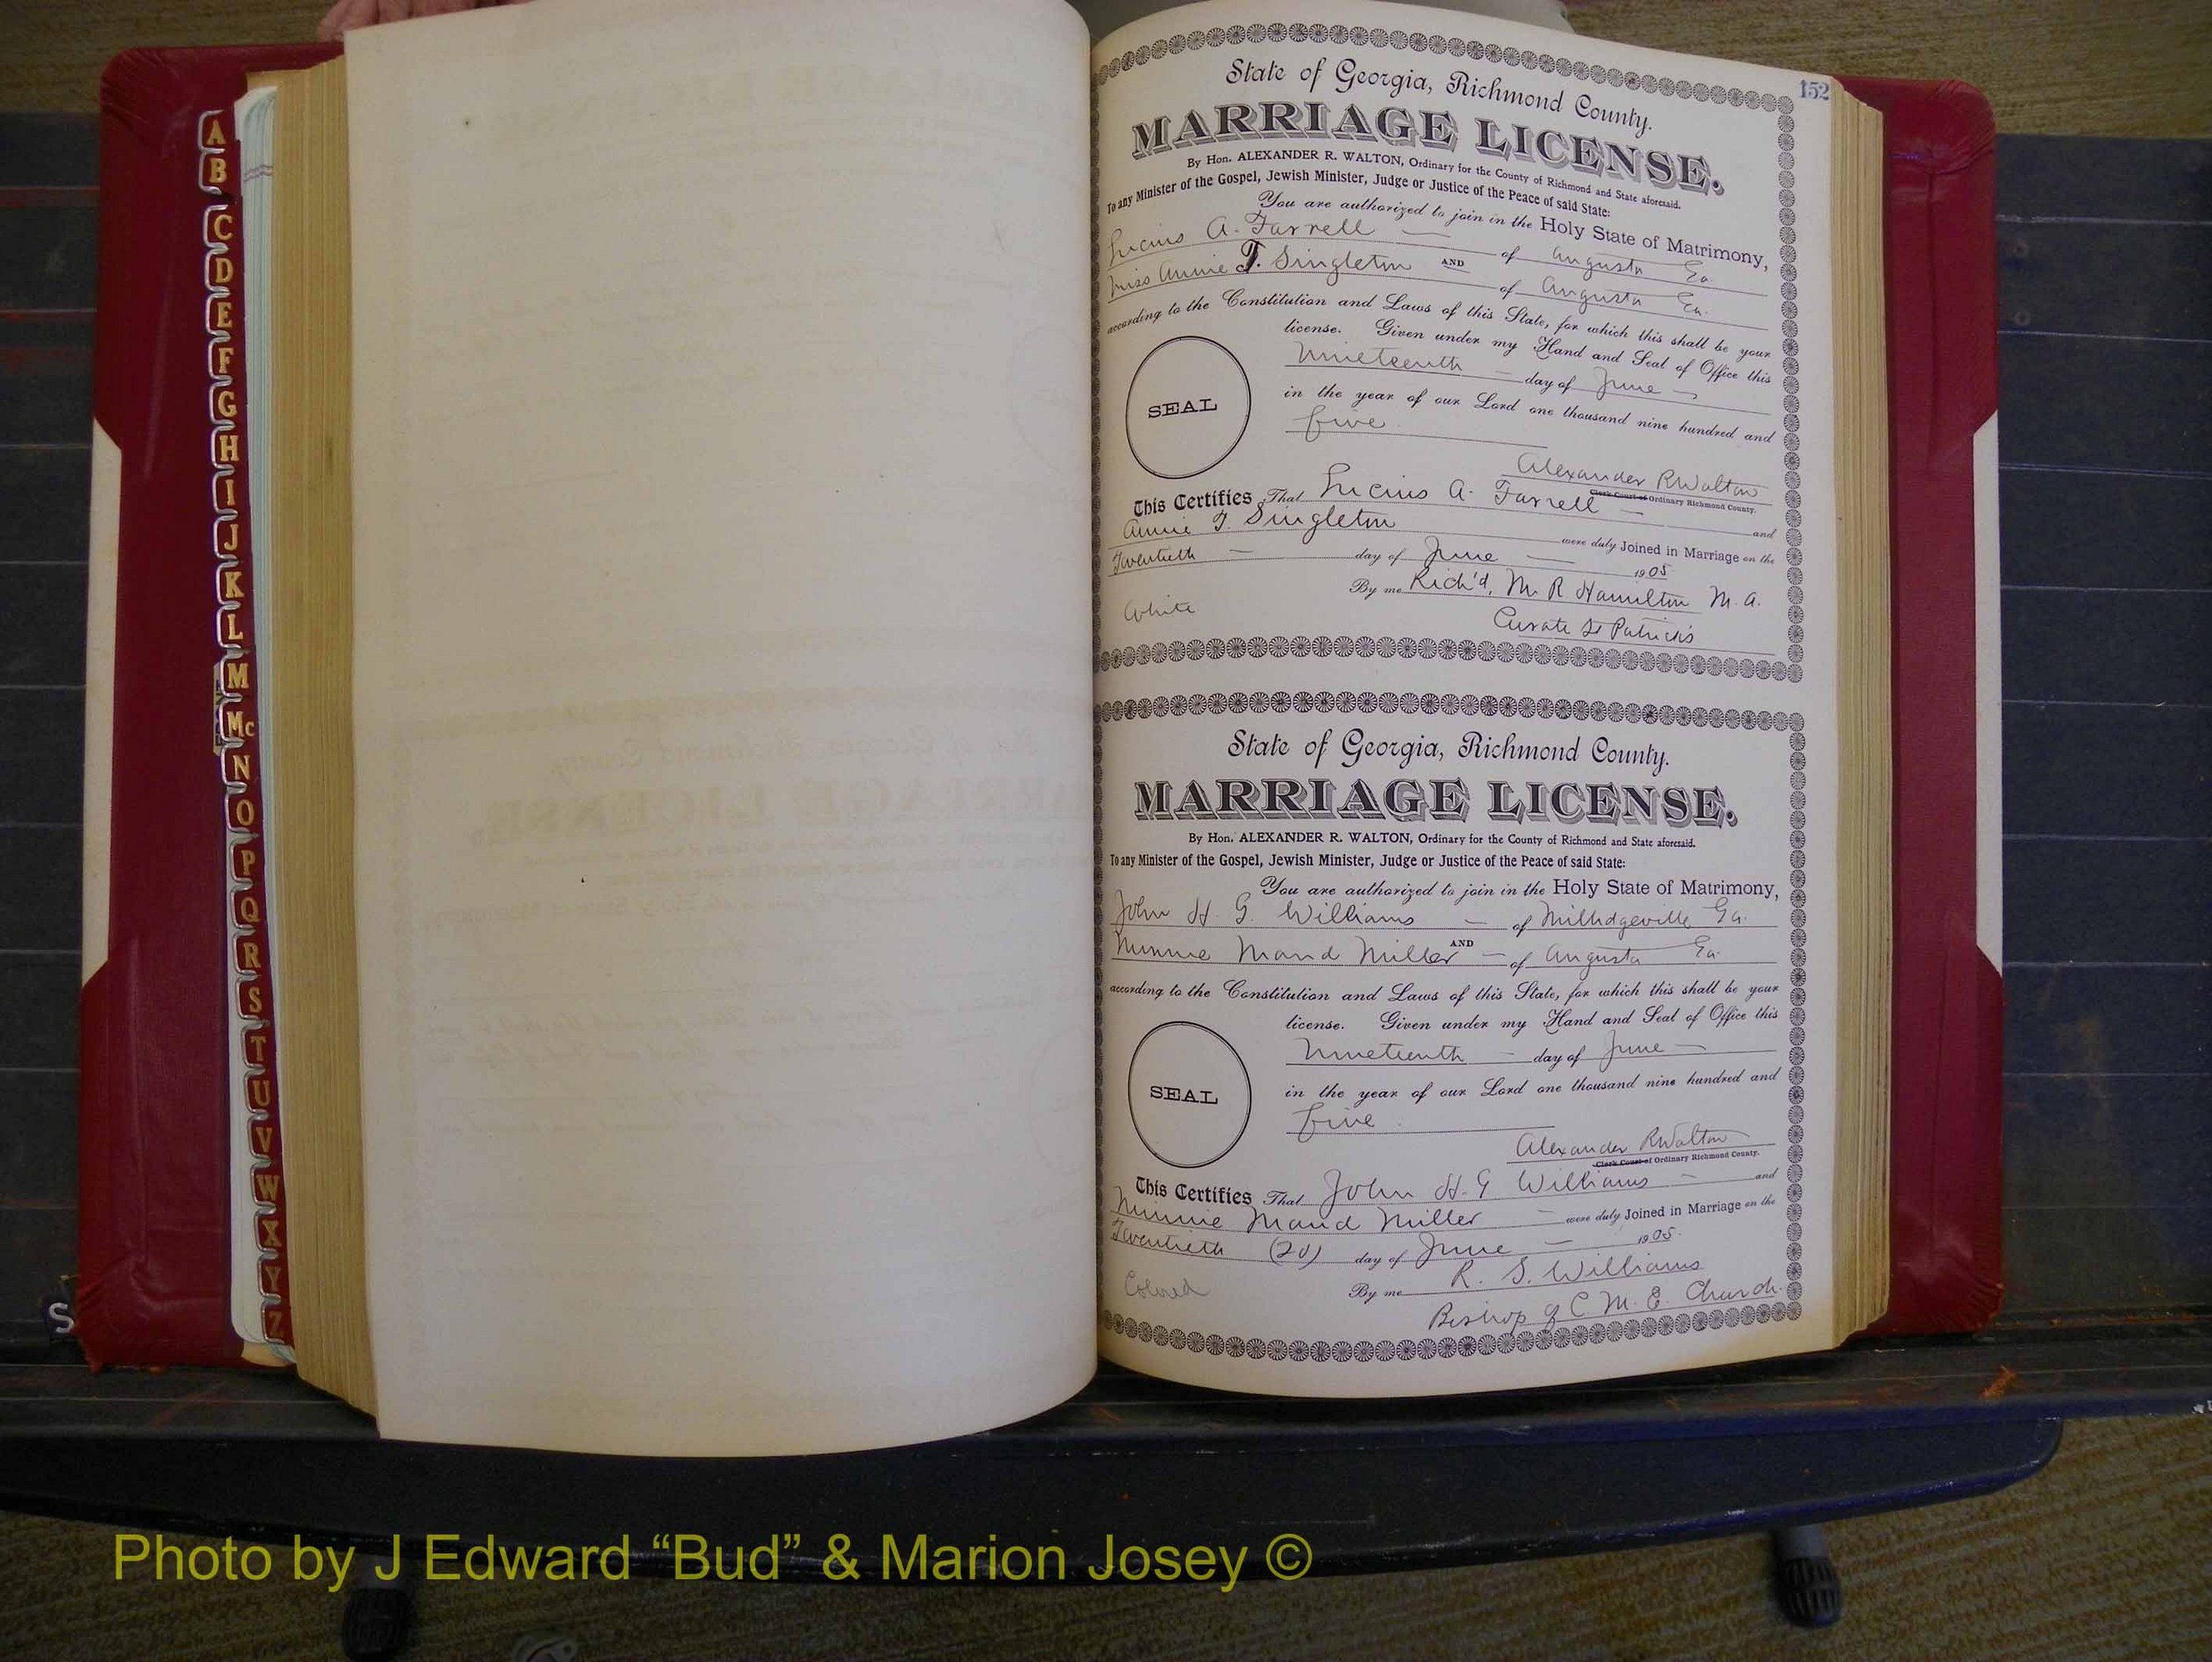 A
B
C
D
E
F
G
H
I
J
K
L
M
Mc
N
O
P
Q
R
S
T
U
V
W
X
Y
Z
S
152
State of Georgia, Richmond County.
MARRIAGE LICENSE.
By Hon. ALEXANDER R. WALTON, Ordinary for the County of Richmond and State aforesaid.
To any Minister of the Gospel, Jewish Minister, Judge or Justice of the Peace of said State:
You are authorized to join in the Holy State of Matrimony,
Lucius A. Farrell — of Augusta Ga.
AND
Miss Annie T. Singleton of Augusta Ga.
according to the Constitution and Laws of this State, for which this shall be your
license. Given under my Hand and Seal of Office this
Nineteenth — day of June —
in the year of our Lord one thousand nine hundred and
five
SEAL
Alexander R Walton
Clerk Court of Ordinary Richmond County.
This Certifies That Lucius A. Farrell — and
Annie T. Singleton were duly Joined in Marriage on the
Twentieth — day of June — 1905
By me Rich'd, M. R Hamilton M. A.
White
Curate St Patrick's
State of Georgia, Richmond County.
MARRIAGE LICENSE.
By Hon. ALEXANDER R. WALTON, Ordinary for the County of Richmond and State aforesaid.
To any Minister of the Gospel, Jewish Minister, Judge or Justice of the Peace of said State:
You are authorized to join in the Holy State of Matrimony,
John H. G. Williams — of Milledgeville Ga.
AND
Minnie Maud Miller — of Augusta Ga.
according to the Constitution and Laws of this State, for which this shall be your
license. Given under my Hand and Seal of Office this
Nineteenth — day of June —
in the year of our Lord one thousand nine hundred and
five
SEAL
Alexander R Walton
Clerk Court of Ordinary Richmond County.
This Certifies That John H. G Williams — and
Minnie Maud Miller — were duly Joined in Marriage on the
Twentieth (20) day of June — 1905.
By me R. S. Williams
Colored
Bishop of C M. E. Church.
Photo by J Edward “Bud” & Marion Josey ©